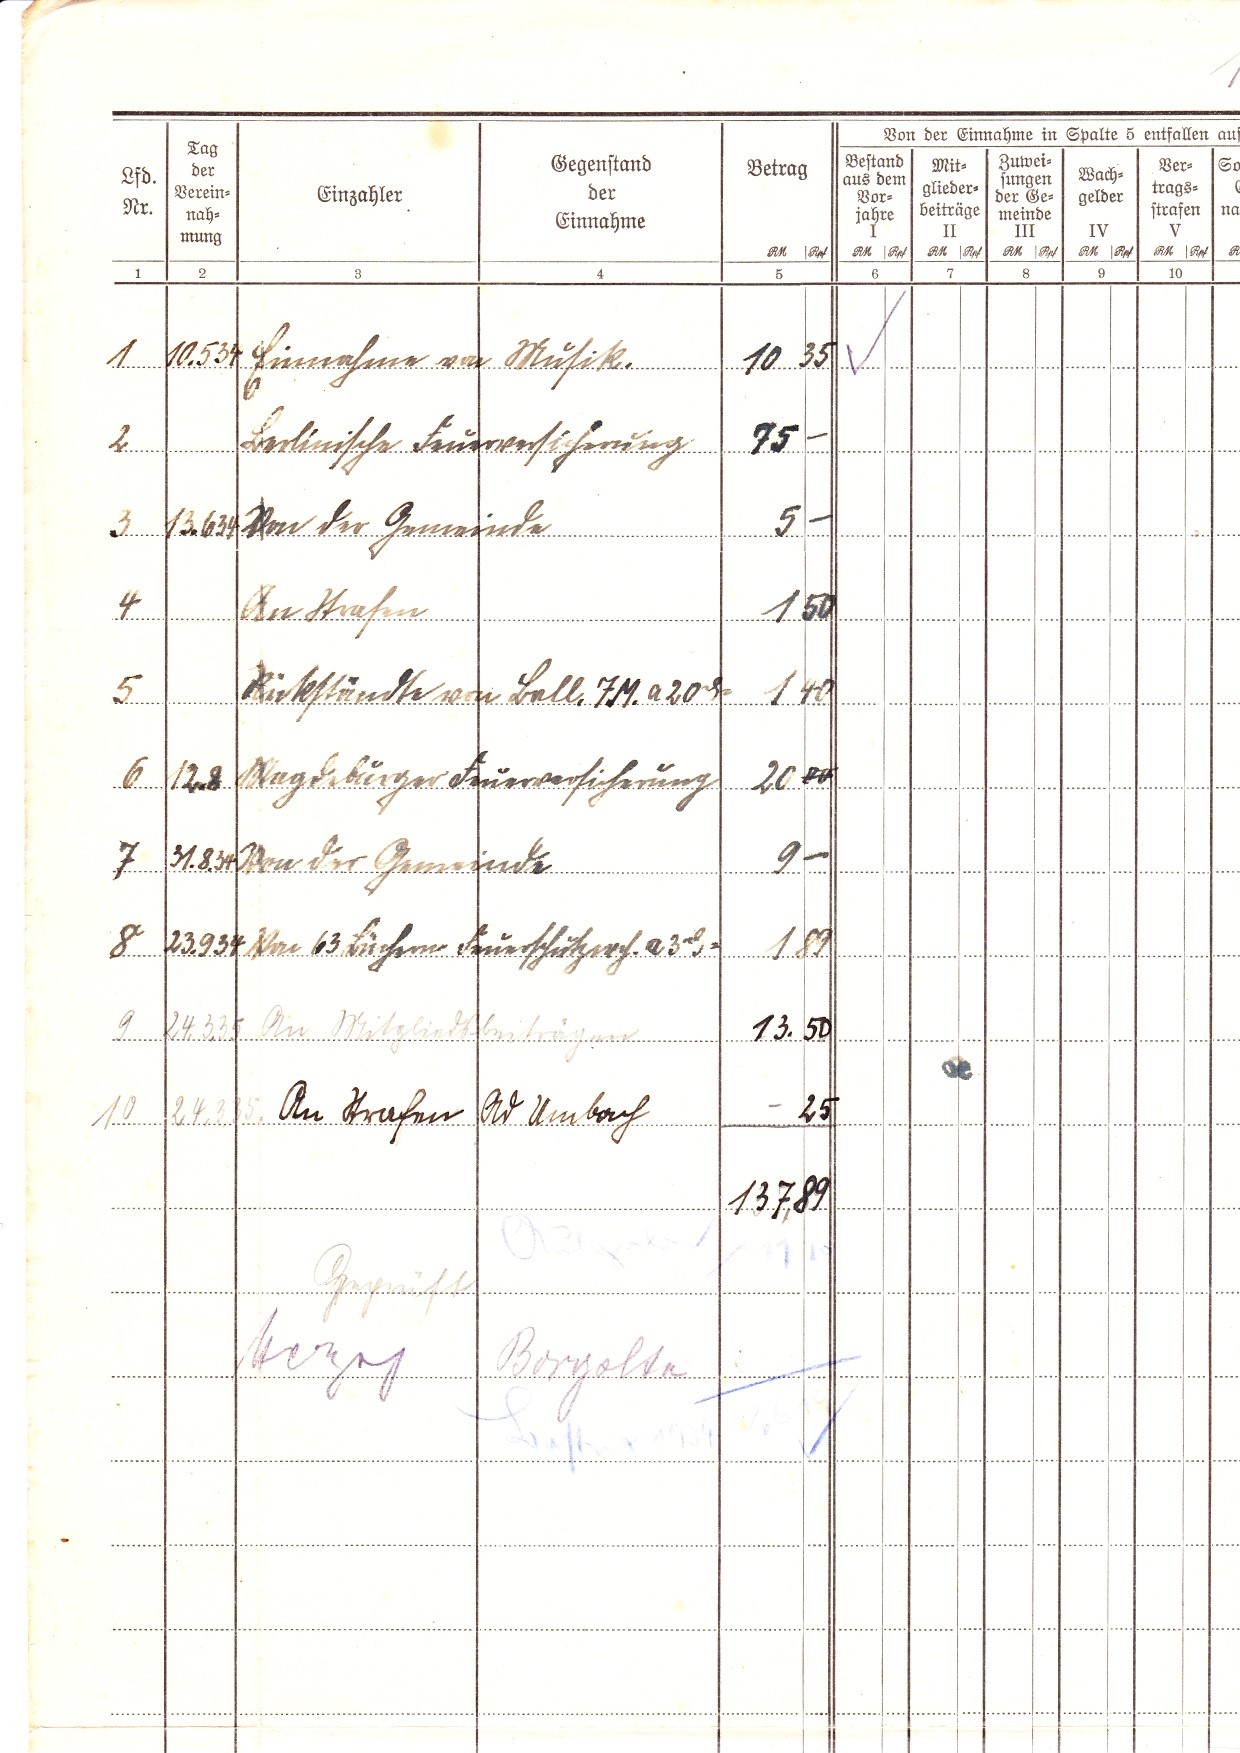 Von der Einnahme in Spalte 5 entfallen auf
Lfd. Nr.
Tag der Verein-nah-mung
Einzahler
Gegenstand der Einnahme
Betrag
Bestand aus dem Vor-jahre I
Mit-glieder-beiträge II
Zuwei-sungen der Ge-meinde III
Wach-gelder IV
Ver-trags-strafen V
RM Rpf RM Rpf RM Rpf RM Rpf RM Rpf RM Rpf
1 2 3 4 5 6 7 8 9 10
1 10.5 34 Einnahme von Musik. 10 35
2 Berlinische Feuerversicherung 75 –
3 13.6 34 Von der Gemeinde 5 –
4 An Strafen 1 50
5 Rückstände von Ball. 7 M. a 20 1 40
6 12.8 Magdeburger Feuerversicherung 20
7 31.8.34 Von der Gemeinde 9 –
8 23.9 34 Von 63 Büchern Feuerschutzwch. a 3 = 1 89
9 24.3.35 An Mitgliedsbeiträgen 13. 50
10 24.3.35. An Strafen Ad Umbach – 25
137,89
Geprüft
Herzog Borgolte